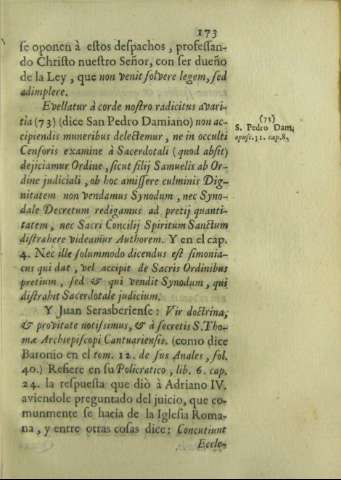 173
se oponen à estos despachos, professan-
do Christo nuestro Señor, con ser dueño
de la Ley, que non venit solvere legem, sed
adimplere.
Evellatur à corde nostro radicitus avari-
tia (73) (dice San Pedro Damiano) non ac-
cipiendis muneribus delectemur, ne in occulti
Censoris examine à Sacerdotali (quod absit)
dejiciamur Ordine, sicut filij Samuelis ab Or-
dine judiciali, ob hoc amissere culminis Dig-
nitatem non vendamus Synodum, nec Syno-
dale Decretum redigamus ad pretij quanti-
tatem, nec Sacri Concilij Spiritum Sanctum
distrahere videamur Authorem. Y en el cap.
4. Nec ille solummodo dicendus est simonia-
cus qui dat, vel accipit de Sacris Ordinibus
pretium, sed & qui vendit Synodum, qui
distrahit Sacerdotale judicium.
Y Juan Serasberiense: Vir doctrina,
& provitate notissimus, & à secretis S. Tho-
mæ Archiepiscopi Cantuariensis. (como dice
Baronio en el tom. 12. de sus Anales, fol.
40.) Refiere en su Policratico, lib. 6. cap.
24. la respuesta que diò à Adriano IV.
aviendole preguntado del juicio, que co-
munmente se hacia de la Iglesia Roma-
na, y entre otras cosas dice: Concutiunt
Eccle-
(73)
S. Pedro Dam,
opusc. 31. cap. 8,